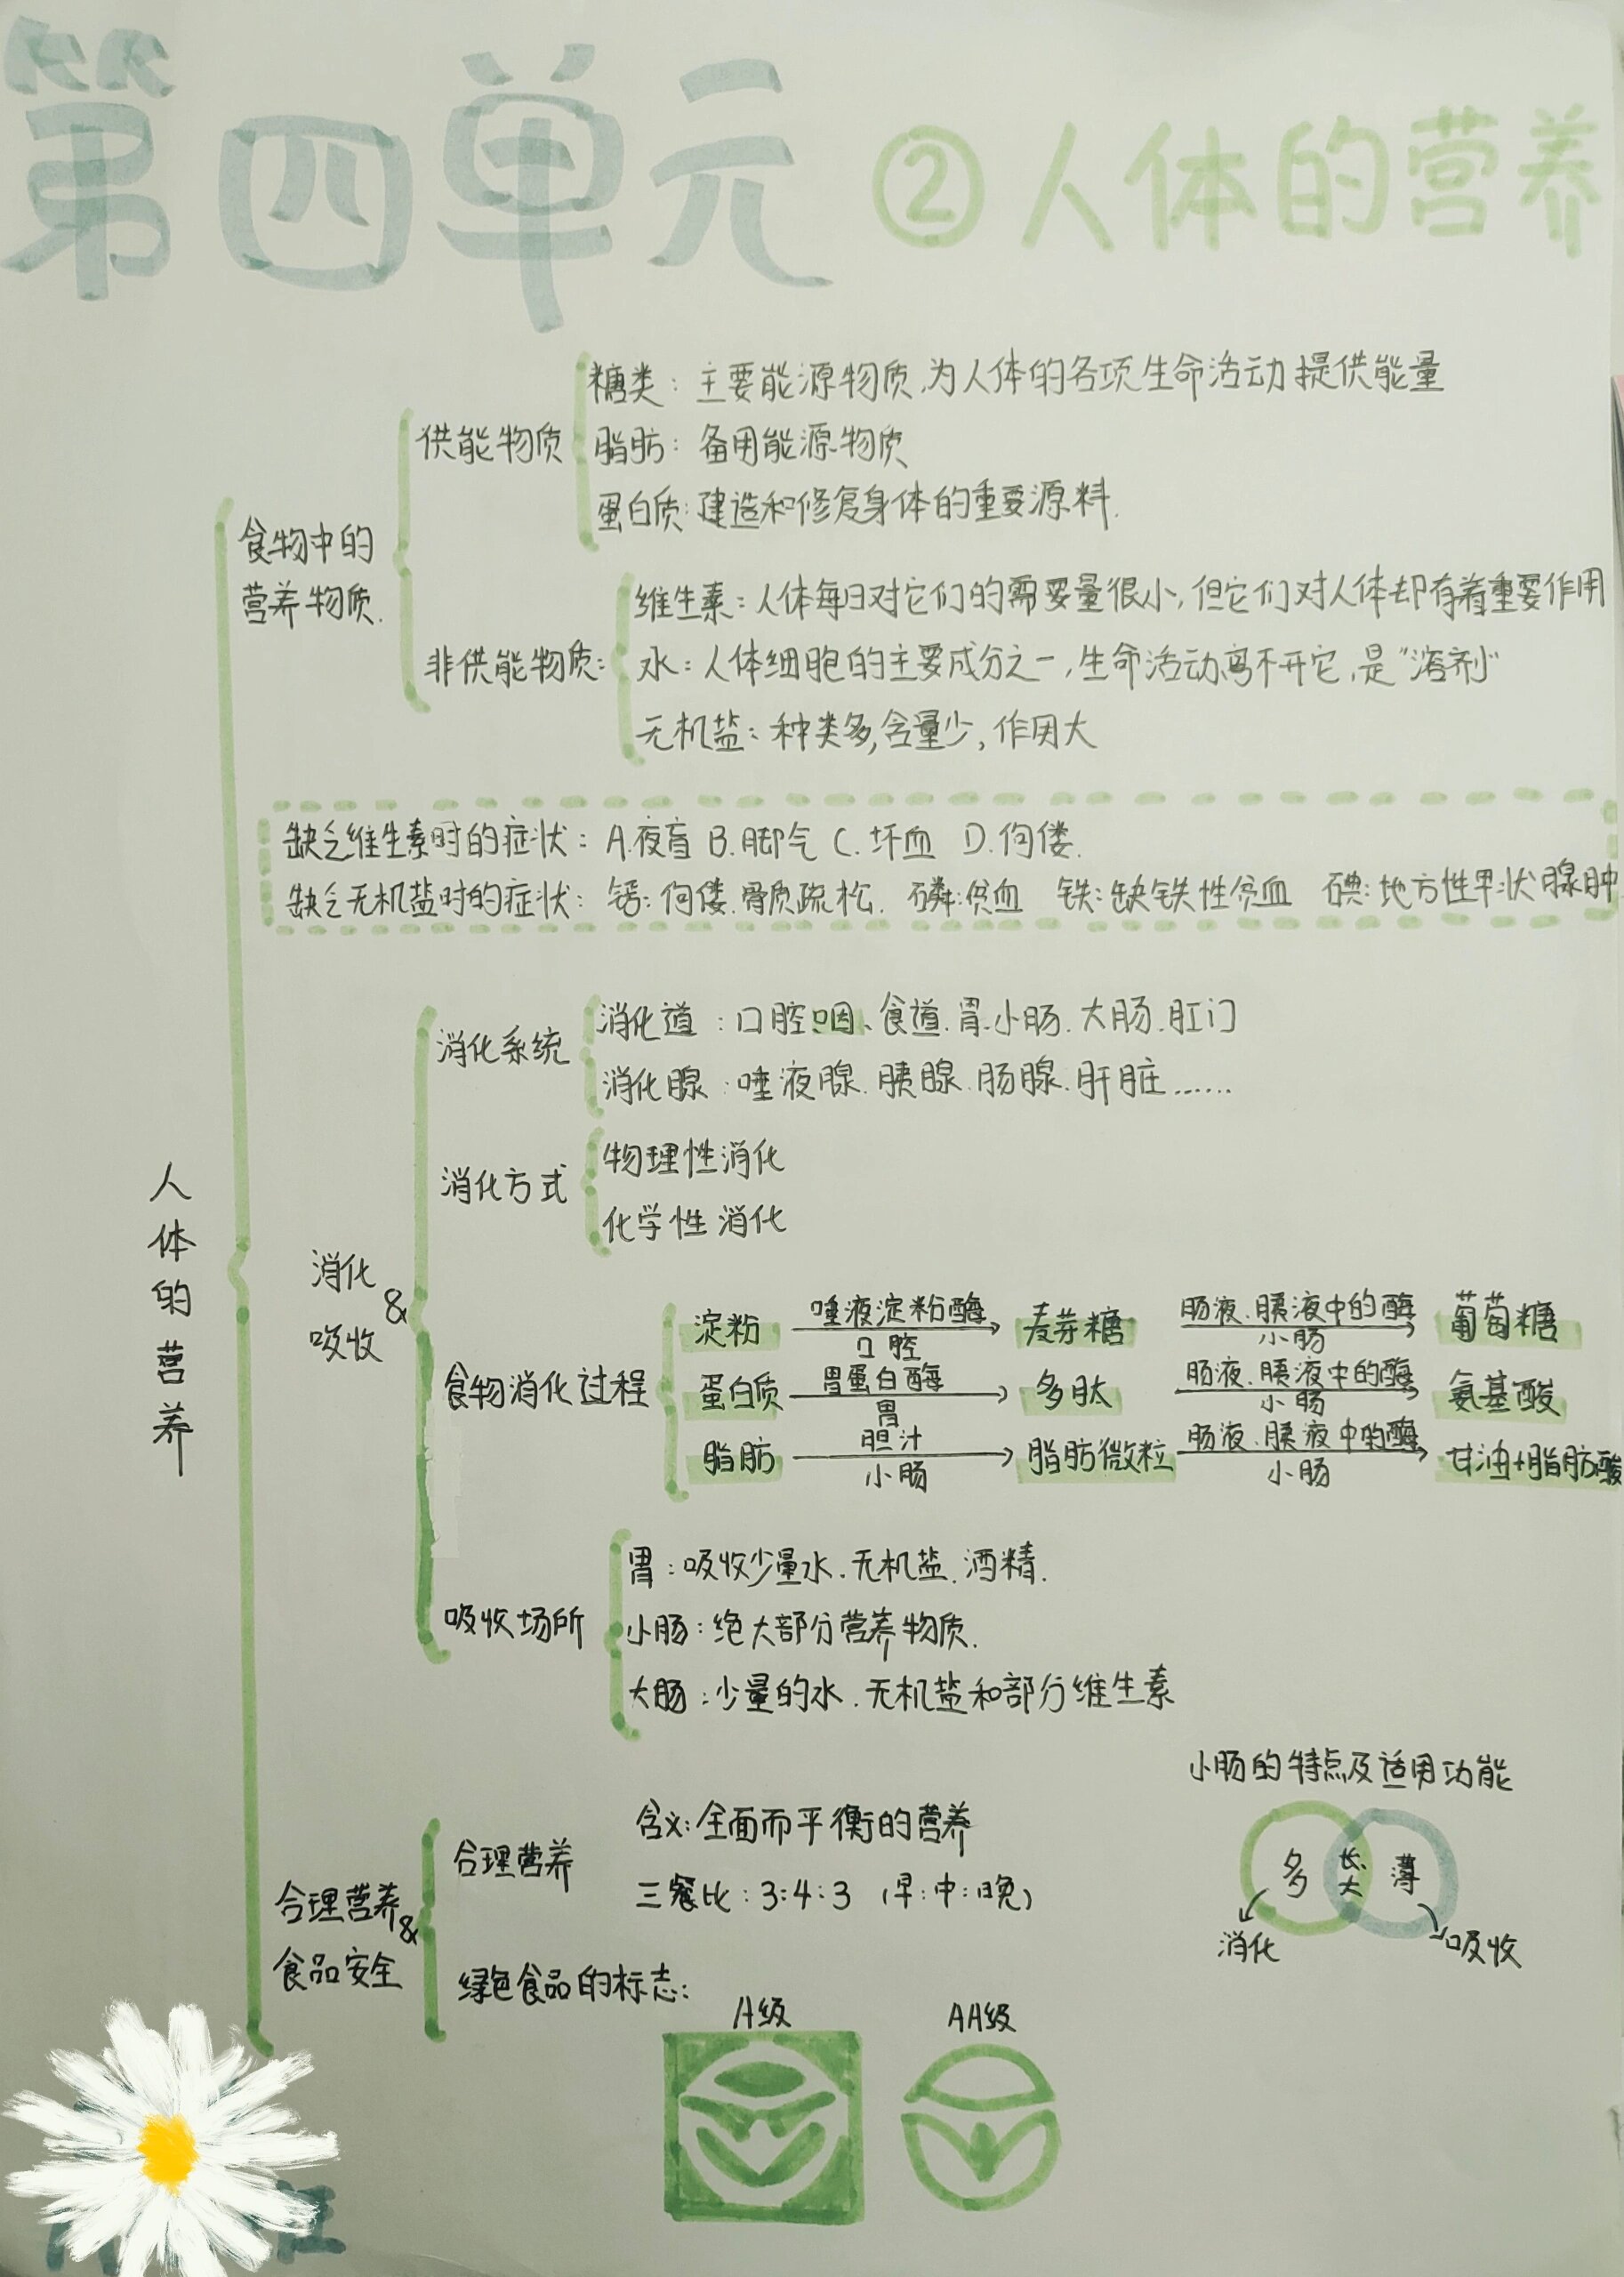 第四单元 ②人体的营养
糖类：主要能源物质，为人体的各项生命活动提供能量
供能物质
脂肪：备用能源物质
蛋白质：建造和修复身体的重要源料.
食物中的
营养物质.
维生素：人体每日对它们的需要量很小，但它们对人体却有着重要作用
非供能物质：
水：人体细胞的主要成分之一，生命活动离不开它，是“溶剂”
无机盐：种类多，含量少，作用大
缺乏维生素时的症状：A.夜盲 B.脚气 C.坏血 D.佝偻.
缺乏无机盐时的症状：钙：佝偻.骨质疏松. 磷：贫血 铁：缺铁性贫血 碘：地方性甲状腺肿
人体的营养
消化
&
吸收
消化系统
消化道：口腔.咽、食道.胃.小肠.大肠.肛门
消化腺：唾液腺.胰腺.肠腺.肝脏……
消化方式
物理性消化
化学性消化
食物消化过程
淀粉 唾液淀粉酶 口腔 麦芽糖 肠液.胰液中的酶 小肠 葡萄糖
蛋白质 胃蛋白酶 胃 多肽 肠液.胰液中的酶 小肠 氨基酸
脂肪 胆汁 小肠 脂肪微粒 肠液.胰液中的酶 小肠 甘油+脂肪酸
吸收场所
胃：吸收少量水.无机盐.酒精.
小肠：绝大部分营养物质.
大肠：少量的水.无机盐和部分维生素
合理营养
&
食品安全
合理营养
含义：全面而平衡的营养
三餐比：3:4:3 (早:中:晚)
绿色食品的标志：
A级 AA级
小肠的特点及适用功能
多 长.大 薄
消化 吸收